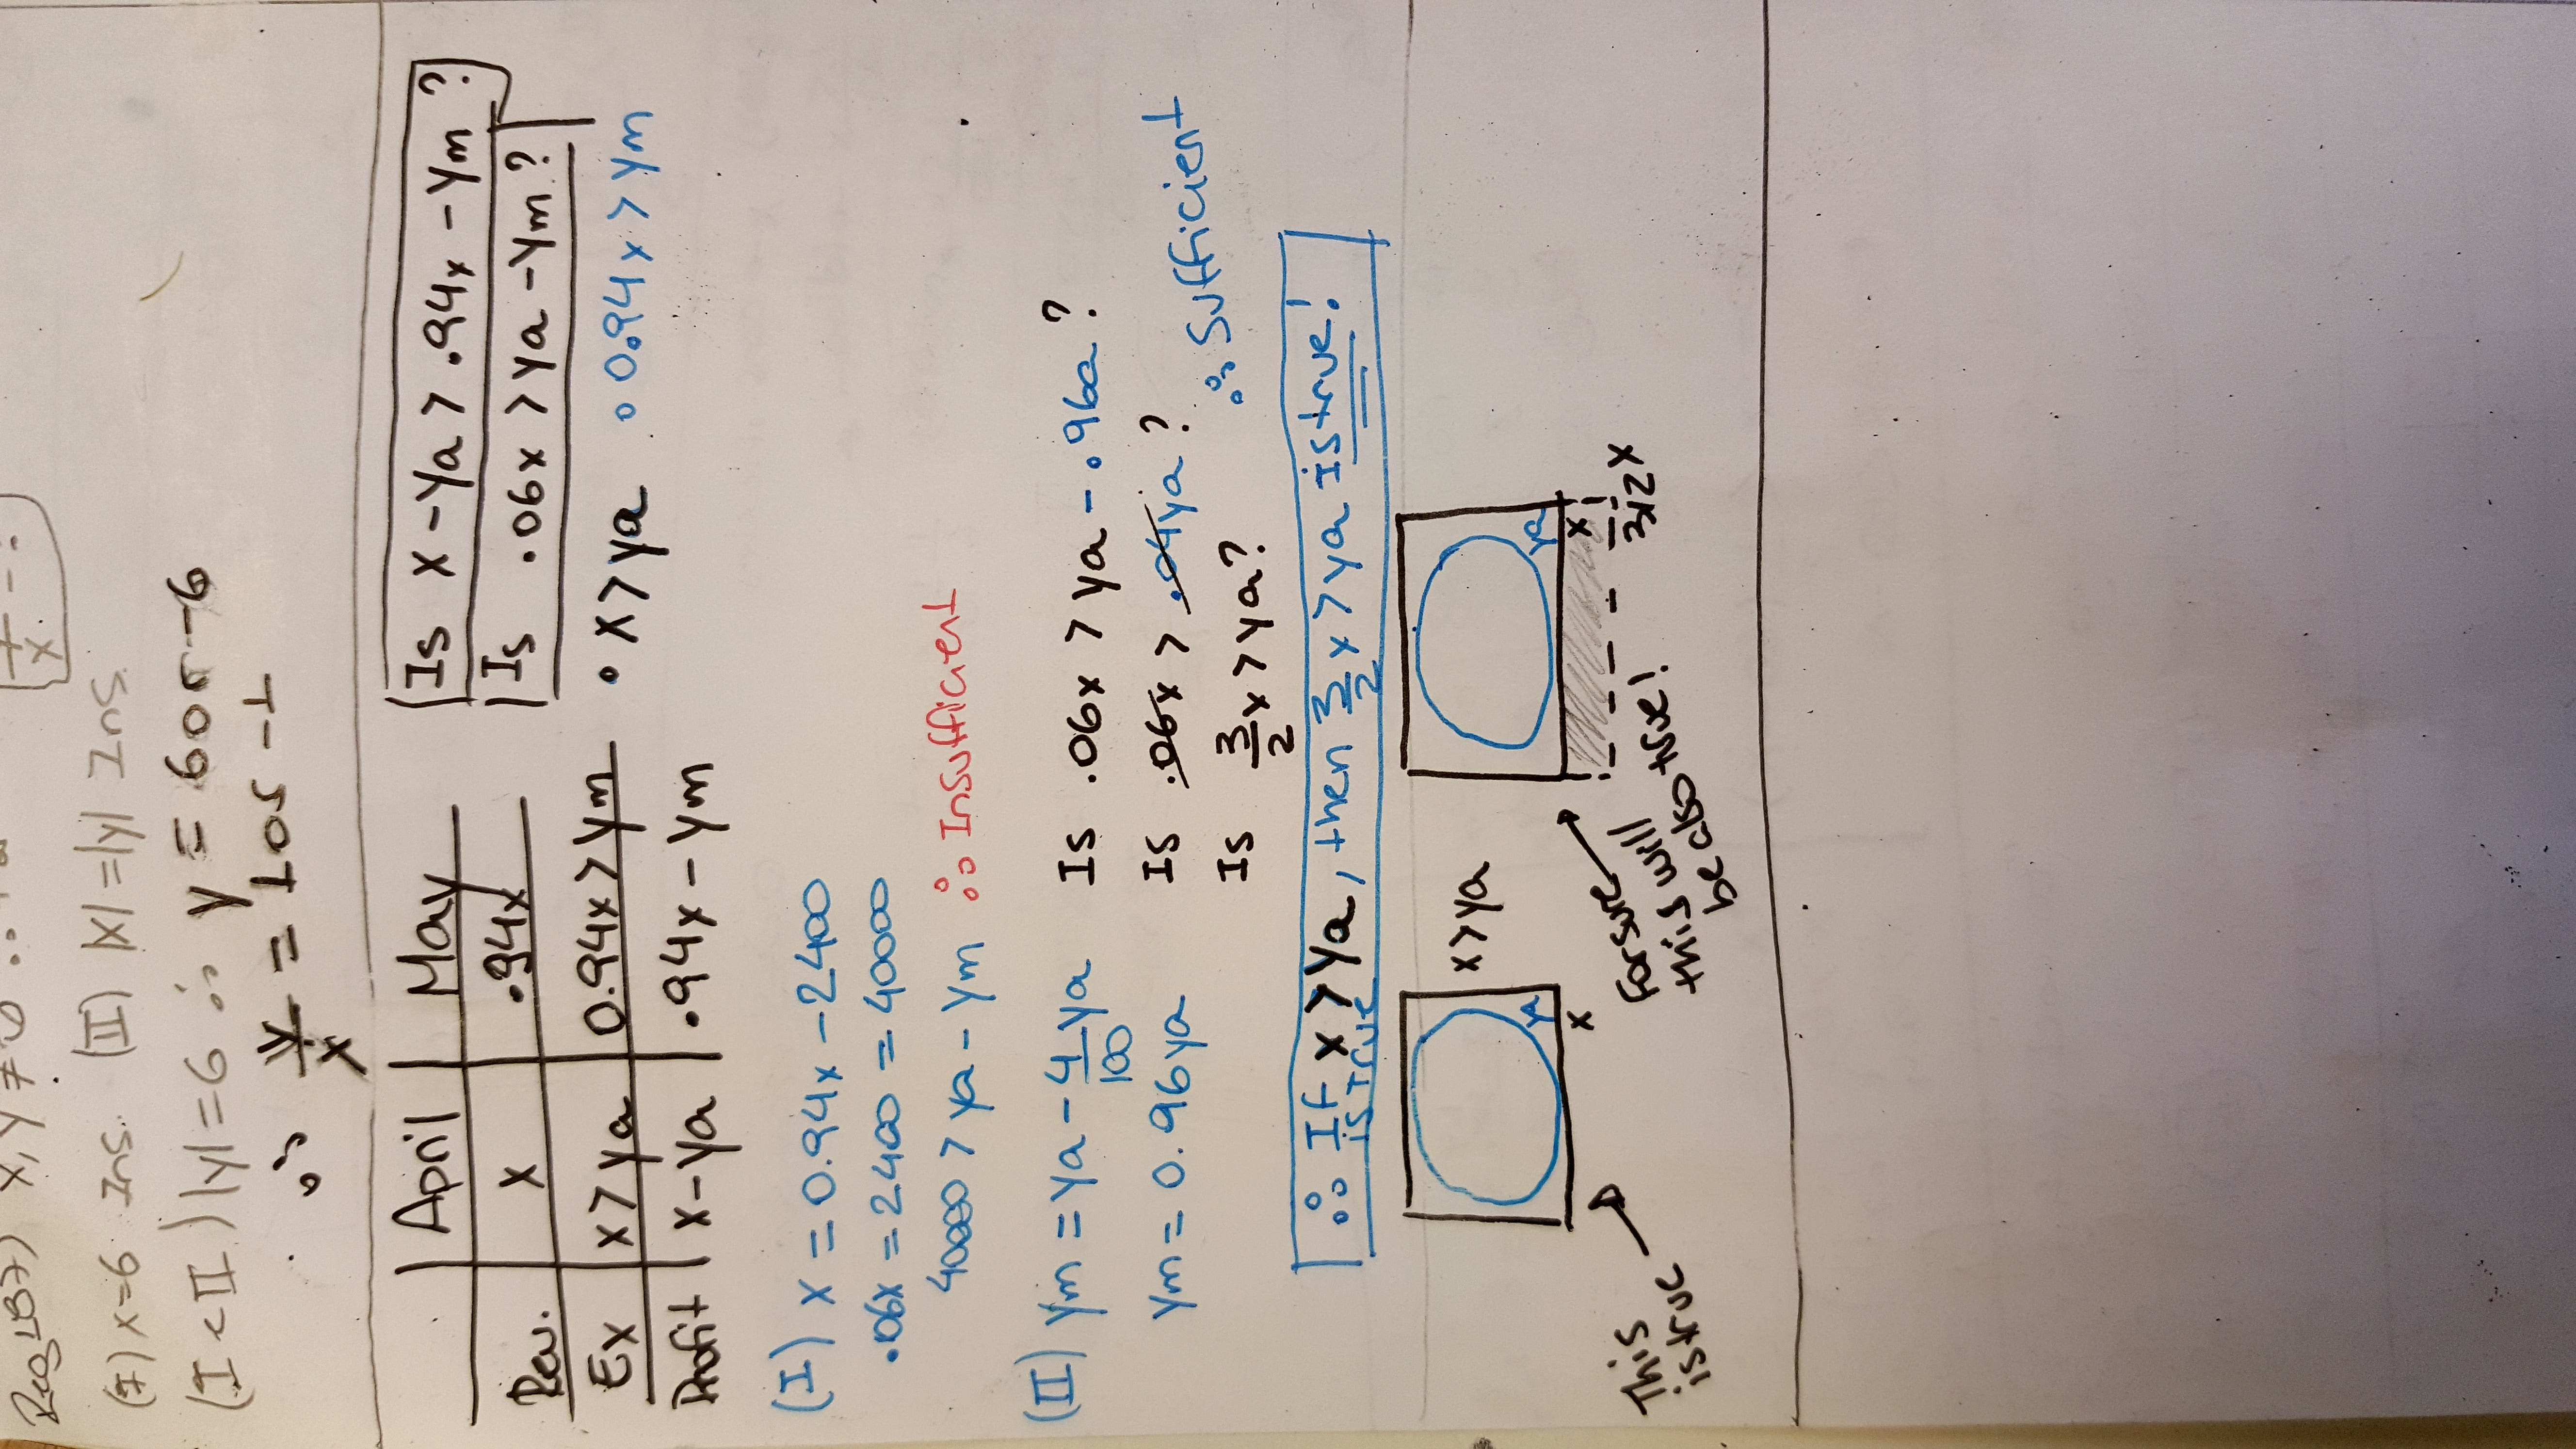 x, y ≠ 0
(I) x=6 Ins. (II) |x| = |y| Ins.
(I c II) |y| = 6 ∴ y = 6 or -6
∴ y/x = 1 or -1
April | May
Rev. | x | .94x
Ex | x > ya | 0.94x > ym
Profit | x - ya | .94x - ym
Is x - ya > .94x - ym ?
Is .06x > ya - ym ?
• x > ya • 0.94x > ym
(I) x = 0.94x - 2400
.06x = 2400 = 40000
40000 > ya - ym ∴ Insufficient
(II) ym = ya - 4/100 ya
ym = 0.96ya
Is .06x > ya - .96a ?
Is .06x > .04ya ?
Is 3/2 x > ya ? ∴ Sufficient
∴ If x > ya, then 3/2 x > ya is true!
is true
x > ya
ya
x
ya
x
3/2 x
This
is true
For sure
this will
be also true!